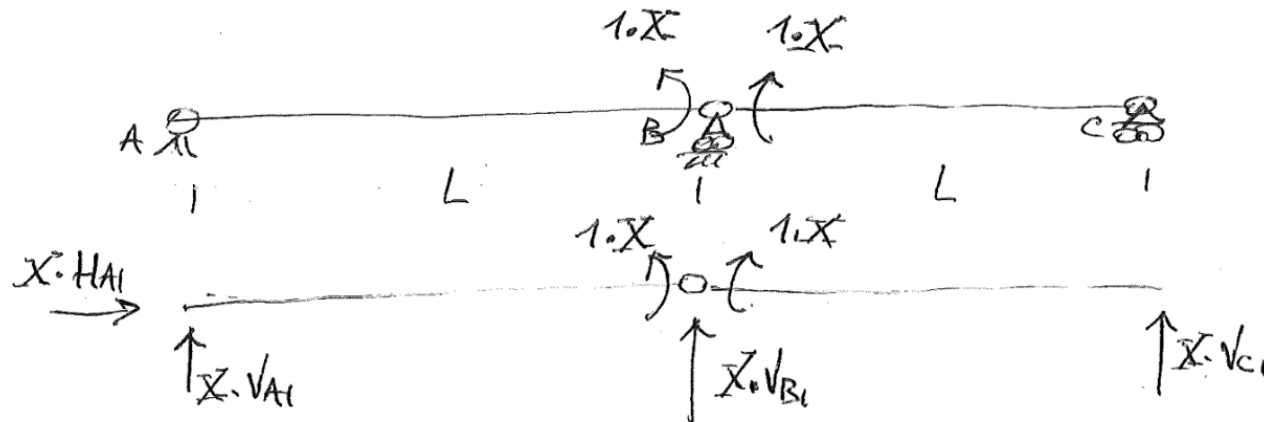 1.X 1.X
A B C
L L
1.X 1.X
X.HA1
X.VA1 X.VB1 X.VC1